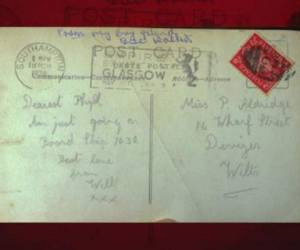 From my boy friend
POST CARD
SOUTHAMPTON
GLASGOW
Communication
Address
Dearest Phyl
Am just going on
Board Ship 10.30
Best love
from
Will
xxx
Miss P. Aldridge
16 Wharf Street
Devizes
Wilts